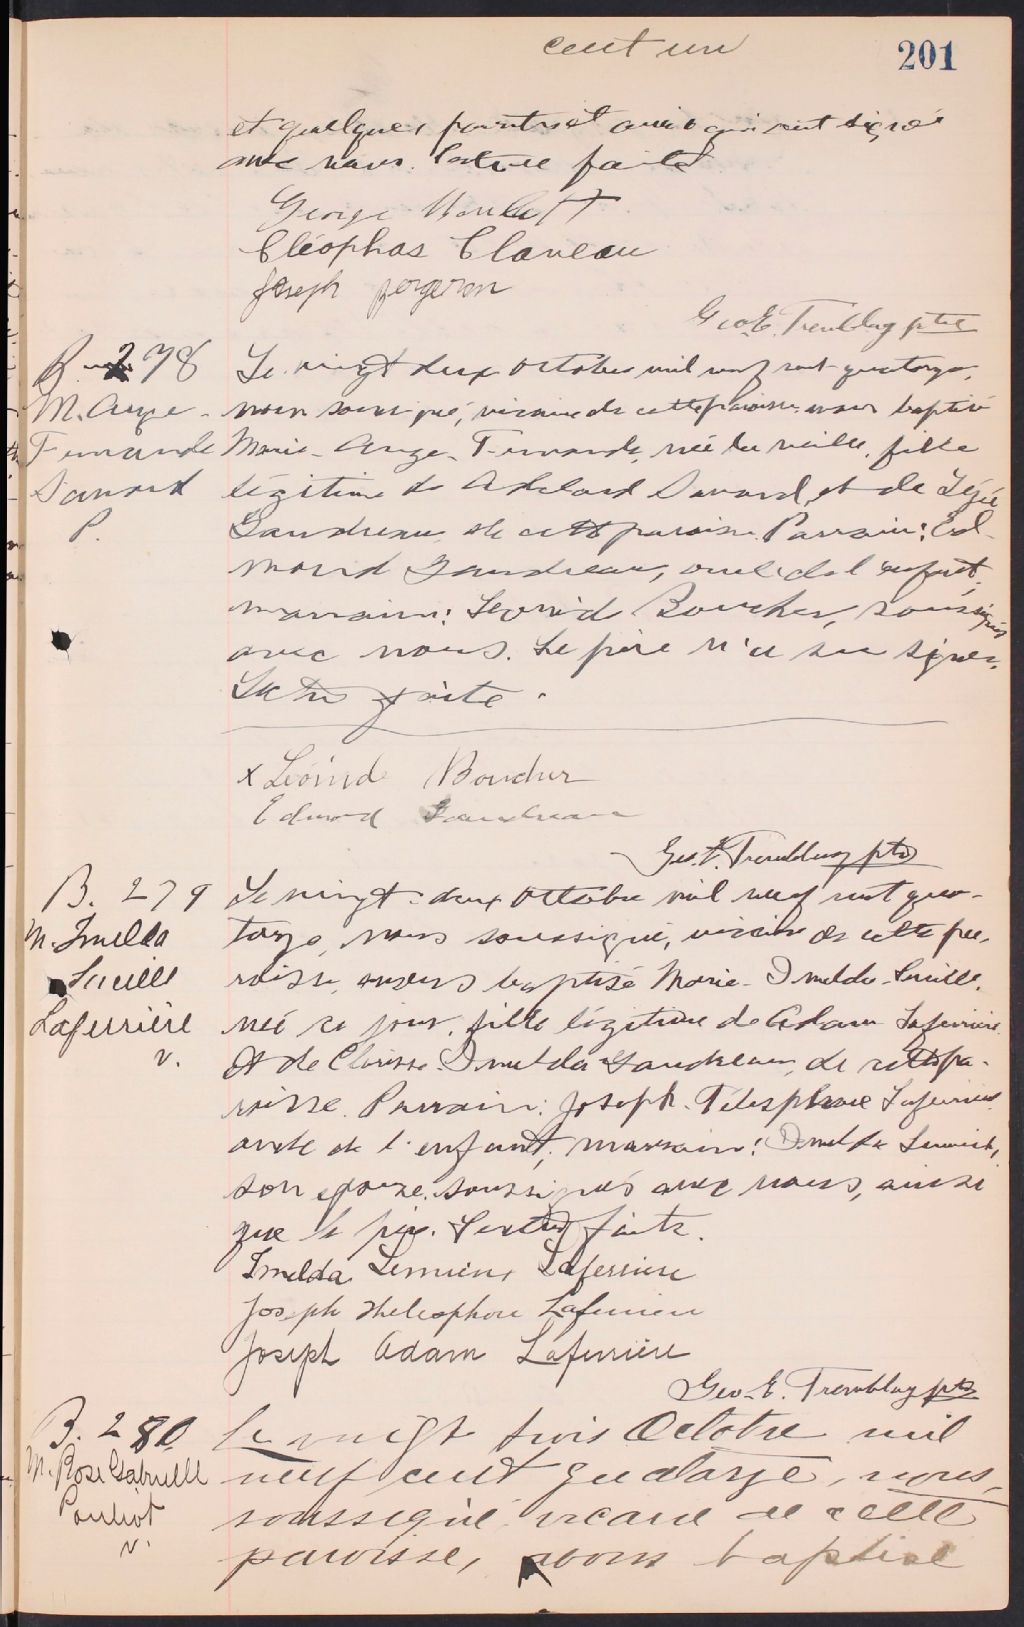 cent un
201
et quelques parents et amis qui ont signé
avec nous. Lecture faite
George
Cléophas Claveau
Joseph Bergeron
Geo. E. Tremblay ptre
B. 278
M. Ange-
Fernande
Savard
P.
Le vingt deux Octobre mil neuf cent quatorze,
nous soussigné, vicaire de cette paroisse avons baptisé
Marie-Ange-Fernande, née la veille, fille
légitime de Adelard Savard et de
Gaudreau de cette paroisse. Parrain: Ed-
mond Gaudreau, oncle de l'enfant;
marraine: Leonide Boucher, soussignés
avec nous. Le père n'a su signer.
Lecture faite.
x Léonide Boucher
Edmond Gaudreau
Geo. E. Tremblay ptre
B. 279
M. Imelda
Lucille
Laferrière
v.
Le vingt-deux Octobre mil neuf cent qua-
torze, nous soussigné, vicaire de cette pa-
roisse, avons baptisé Marie-Imelda-Lucille,
née ce jour, fille légitime de Adam Laferrière
et de Clarisse Imelda Gaudreau, de cette pa-
roisse. Parrain: Joseph-Télesphore Laferrière
oncle de l'enfant; marraine: Imelda Lemieux,
son épouse, soussignés avec nous, ainsi
que le père. Lecture faite.
Imelda Lemieux Laferriere
Joseph Thelesphore Laferriere
Joseph Adam Laferrière
Geo. E. Tremblay ptre
B. 280
M. Rose Gabrielle
Pouliot
v.
Le vingt trois Octobre mil
neuf cent quatorze, nous,
soussigné vicaire de cette
paroisse, avons baptisé